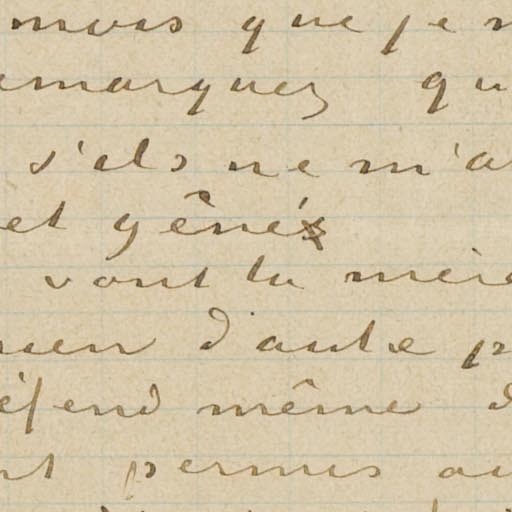 mois que je
remarquez qu
s'ils ne m'a
et gênés
vont la mère
d'autre p
éfend même d
nt permis au